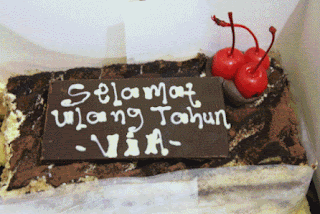 Selamat
ulang Tahun
-ViA-